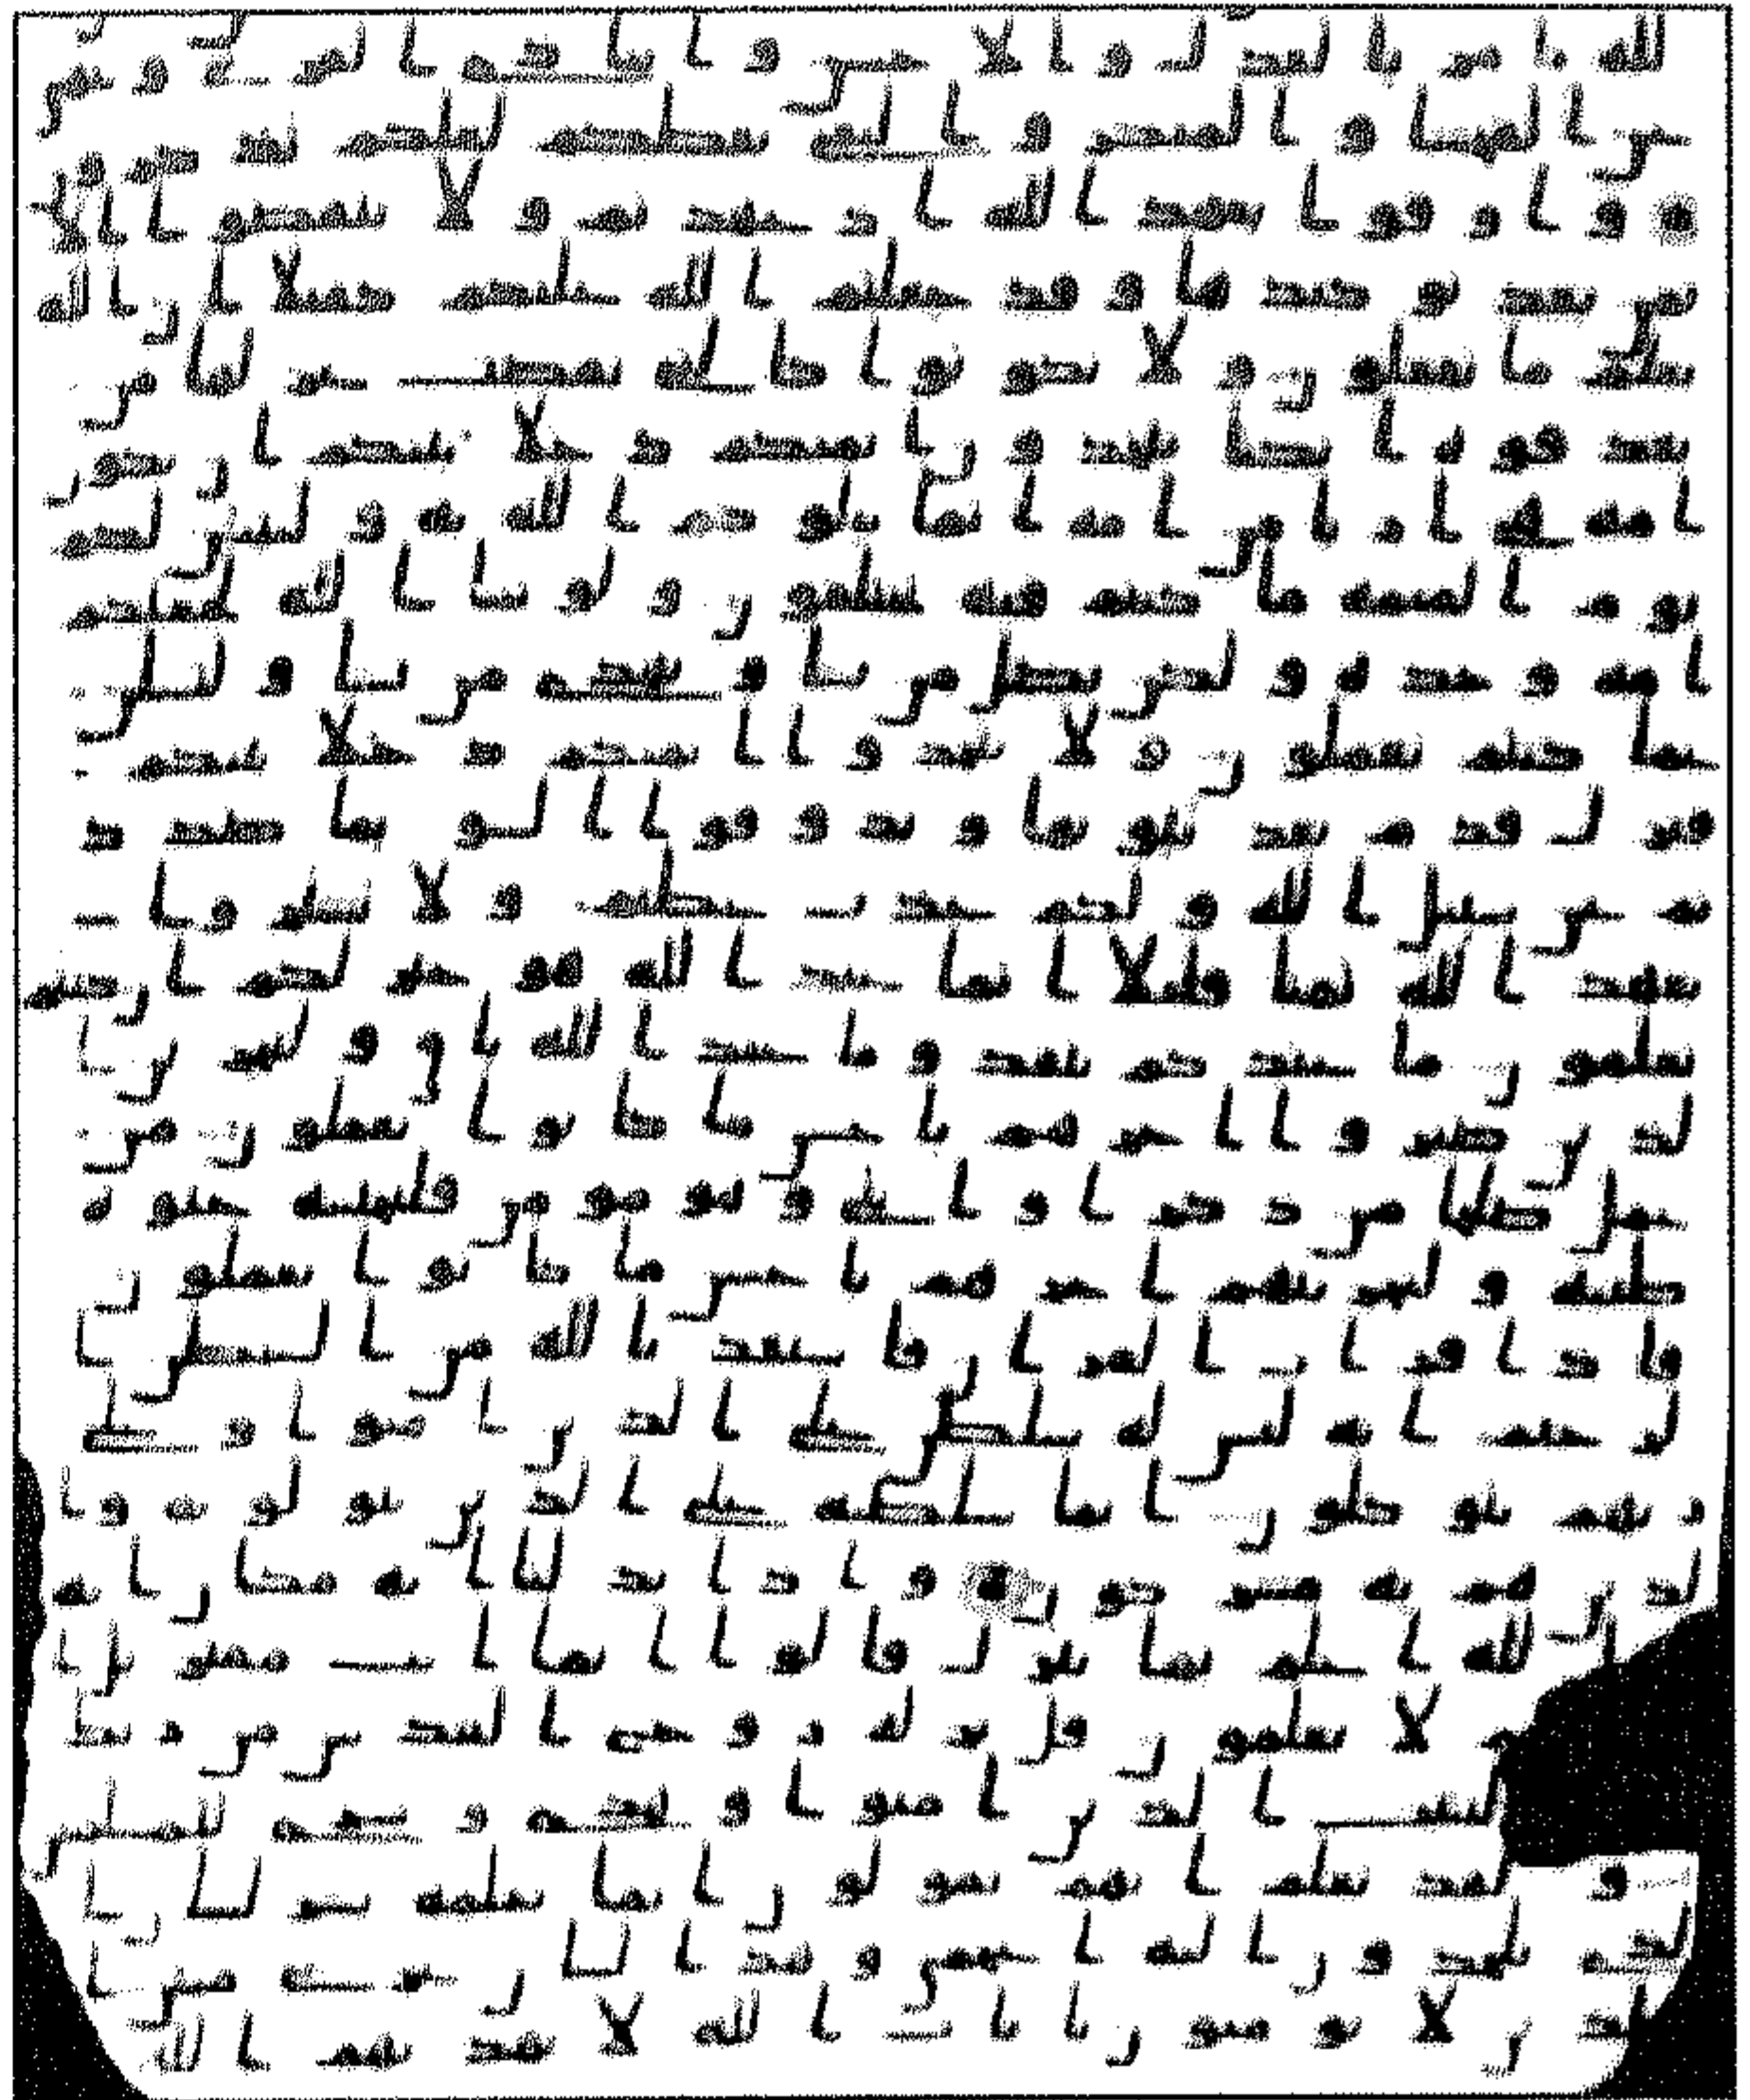 الله يامر بالعدل والاحسن وايتاى ذى القربى وينهى
عن الفحشا والمنكر والبغى يعظكم لعلكم تذكرون
واوفوا بعهد الله اذا عهدتم ولا تنقضوا الا
يمن بعد توكيدها وقد جعلتم الله عليكم كفيلا ان الله
يعلم ما تفعلون ولا تكونوا كالتى نقضت غزلها من
بعد قوة انكثا تتخذون ايمنكم دخلا بينكم ان تكون
امة هى اربى من امة انما يبلوكم الله به وليبينن لكم
يوم القيمة ما كنتم فيه تختلفون ولو شا الله لجعلكم
امة وحدة ولكن يضل من يشا ويهدى من يشا ولتسلن
عما كنتم تعملون ولا تتخذوا ايمنكم دخلا بينكم
فتزل قدم بعد ثبوتها وتذوقوا السو بما صدد
تم عن سبيل الله ولكم عذب عظيم ولا تشتروا
بعهد الله ثمنا قليلا انما عند الله هو خير لكم ان كنتم
تعلمون ما عندكم ينفد وما عند الله باق ولنجزين ا
لذين صبروا اجرهم باحسن ما كانوا يعملون من
عمل صلحا من ذكر او انثى وهو مومن فلنحيينه حيوة
طيبة ولنجزينهم اجرهم باحسن ما كانوا يعملون
فاذا قرات القران فاستعذ بالله من الشيطن ا
لرجيم انه ليس له سلطن على الذين امنوا وعلى
ربهم يتوكلون انما سلطنه على الذين يتولونه وا
لذين هم به مشركون واذا بدلنا اية مكان اية
الله اعلم بما ينزل قالوا انما انت مفتر بل ا
هم لا يعلمون قل نزله روح القدس من ربك
ليثبت الذين امنوا وهدى وبشرى للمسلمين
ولقد نعلم انهم يقولون انما يعلمه بشر لسان ا
لذى يلحدون اليه اعجمى وهذا لسان عربى مبين ا
لذين لا يومنون بايت الله لا يهديهم الله